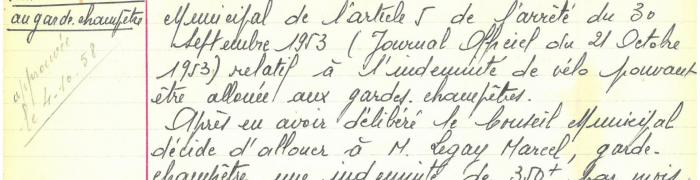 au garde-champêtre
approuvée
le 4.10.58
Municipal de l'article 5 de l'arrêté du 30
Septembre 1953 (Journal Officiel du 21 Octobre
1953) relatif à l'indemnité de vélo pouvant
être allouée aux gardes-champêtres.
Après en avoir délibéré le Conseil Municipal
décide d'allouer à M. Legay Marcel, garde-
champêtre une indemnité de 350f par mois